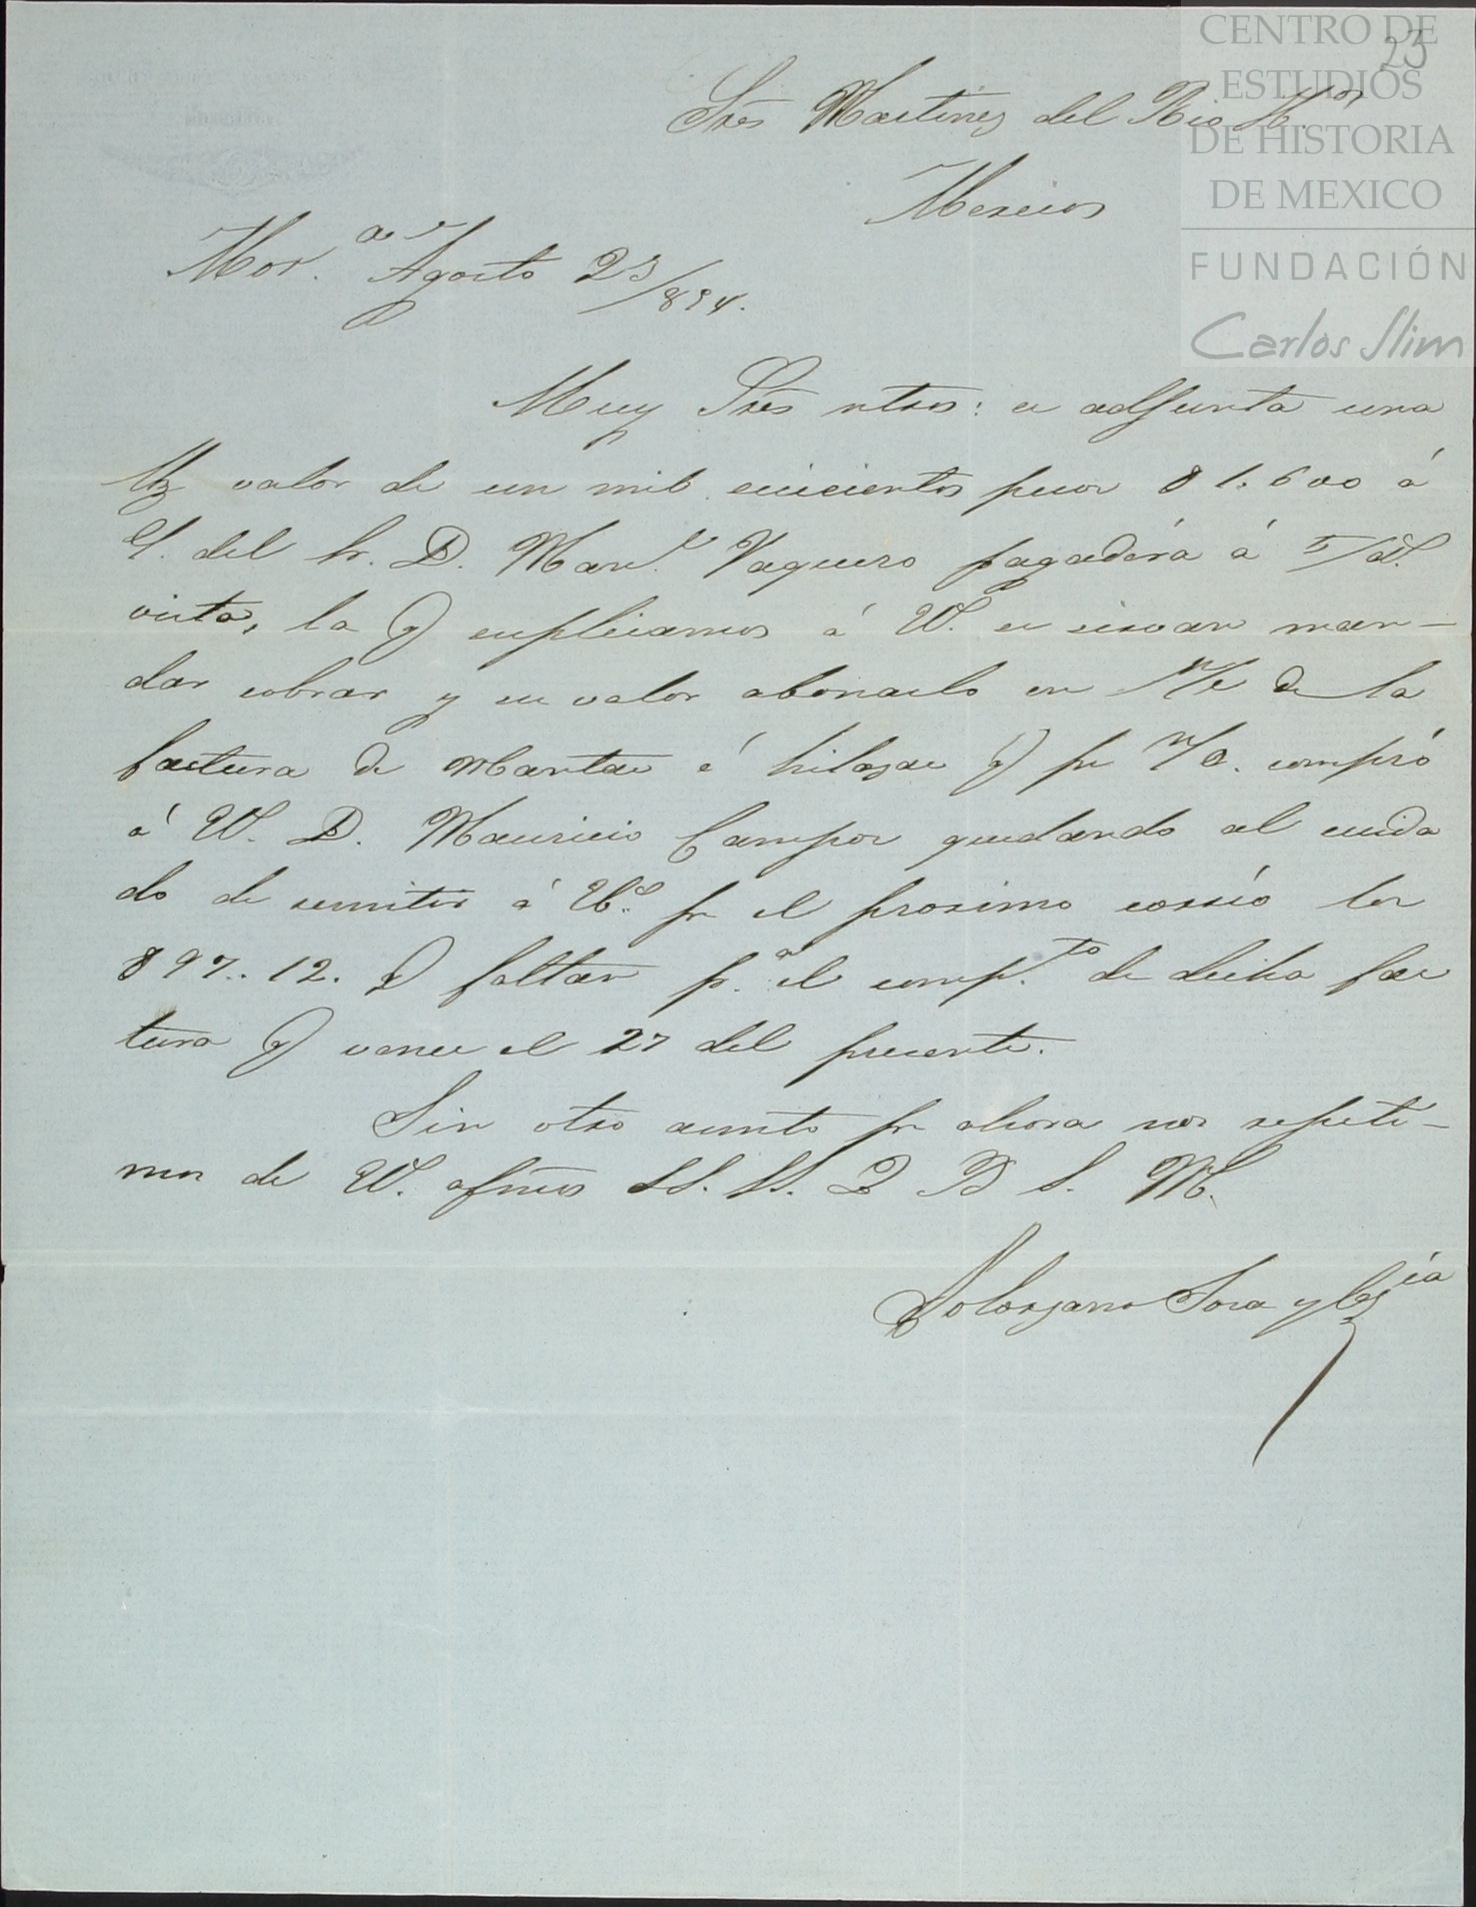 CENTRO DE
ESTUDIOS
DE HISTORIA
DE MEXICO
FUNDACIÓN
Carlos Slim
23
Sres Martinez del Rio H.nos
Mexico
Mor. Agosto 23/894.
Muy Sres ntros: se adjunta una
valor de un mil seiscientos pesos $ 1.600 á
del Sr. D. Man.l Vaquero pagadera á 5/d.
vista, la q suplicamos á W. se sirvan man-
dar cobrar y su valor abonarlo en de la
factura de Mantas é hilazas q pr compró
á W. D. Mauricio Campos quedando al cuida
do de remitir á Us pr el procsimo correo los
$ 97.. 12. q faltan p.a el comp.to de dicha fac
tura q vence el 27 del presente.
Sin otro asunto pr ahora nos repeti-
mos de W. afmos SS. SS. Q B S. M.
Solorzano Sosa y Cia